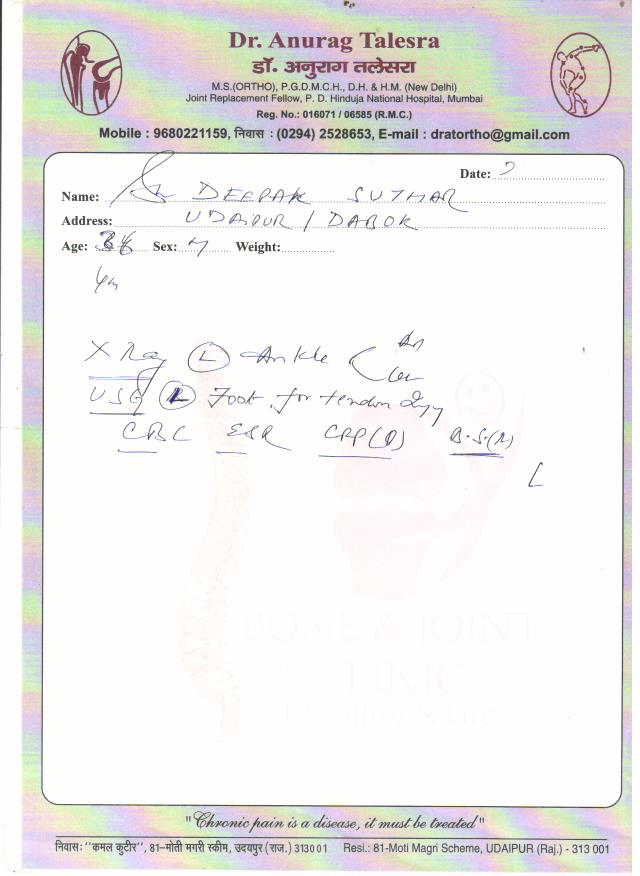 Dr. Anurag Talesra
डॉ. अनुराग तलेसरा
M.S.(ORTHO), P.G.D.M.C.H., D.H. & H.M. (New Delhi)
Joint Replacement Fellow, P. D. Hinduja National Hospital, Mumbai
Reg. No.: 016071 / 06585 (R.M.C.)
Mobile : 9680221159, निवास : (0294) 2528653, E-mail : dratortho@gmail.com
Date:
Name: DEEPAK SUTHAR
Address: UDAIPUR / DABOK
Age: Sex: M Weight:
X Ray L Ankle
USG L Foot for tendon
CBC ESR CRP(Q) B.S.(R)
BONE & JOINT
CLINIC
"Chronic pain is a disease, it must be treated"
निवास: "कमल कुटीर", 81-मोती मगरी स्कीम, उदयपुर (राज.) 313001 Resi.: 81-Moti Magri Scheme, UDAIPUR (Raj.) - 313 001